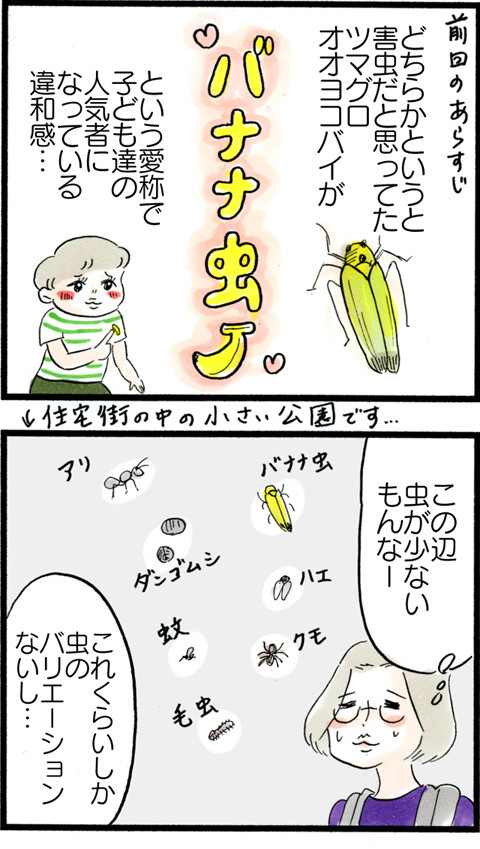 前回のあらすじ
どちらかというと
害虫だと思ってた
ツマグロ
オオヨコバイが
バナナ虫
という愛称で
子ども達の
人気者に
なっている
違和感…
↓住宅街の中の小さい公園です…
この辺
虫が少ない
もんなー
バナナ虫
アリ
ダンゴムシ
ハエ
蚊
クモ
毛虫
これくらいしか
虫の
バリエーション
ないし…